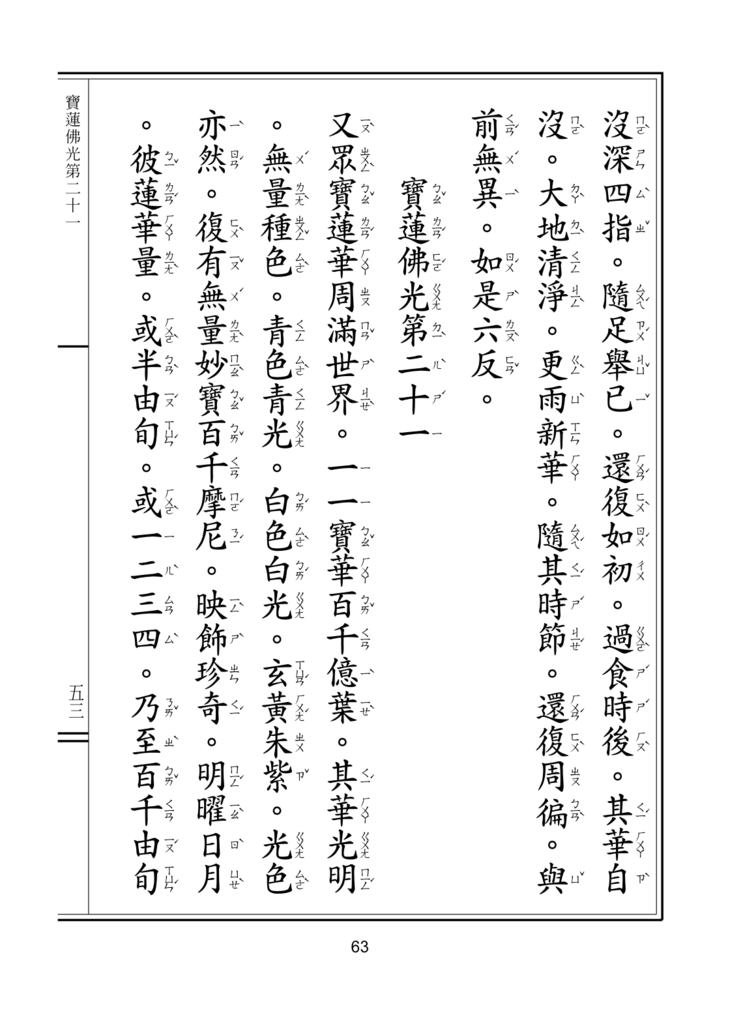 沒深四指。隨足舉已。還復如初。過食時後。其華自
沒。大地清淨。更雨新華。隨其時節。還復周徧。與
前無異。如是六反。
寶蓮佛光第二十一
又眾寶蓮華周滿世界。一一寶華百千億葉。其華光明
。無量種色。青色青光。白色白光。玄黃朱紫。光色
亦然。復有無量妙寶百千摩尼。映飾珍奇。明曜日月
。彼蓮華量。或半由旬。或一二三四。乃至百千由旬
寶蓮佛光第二十一
五三
63